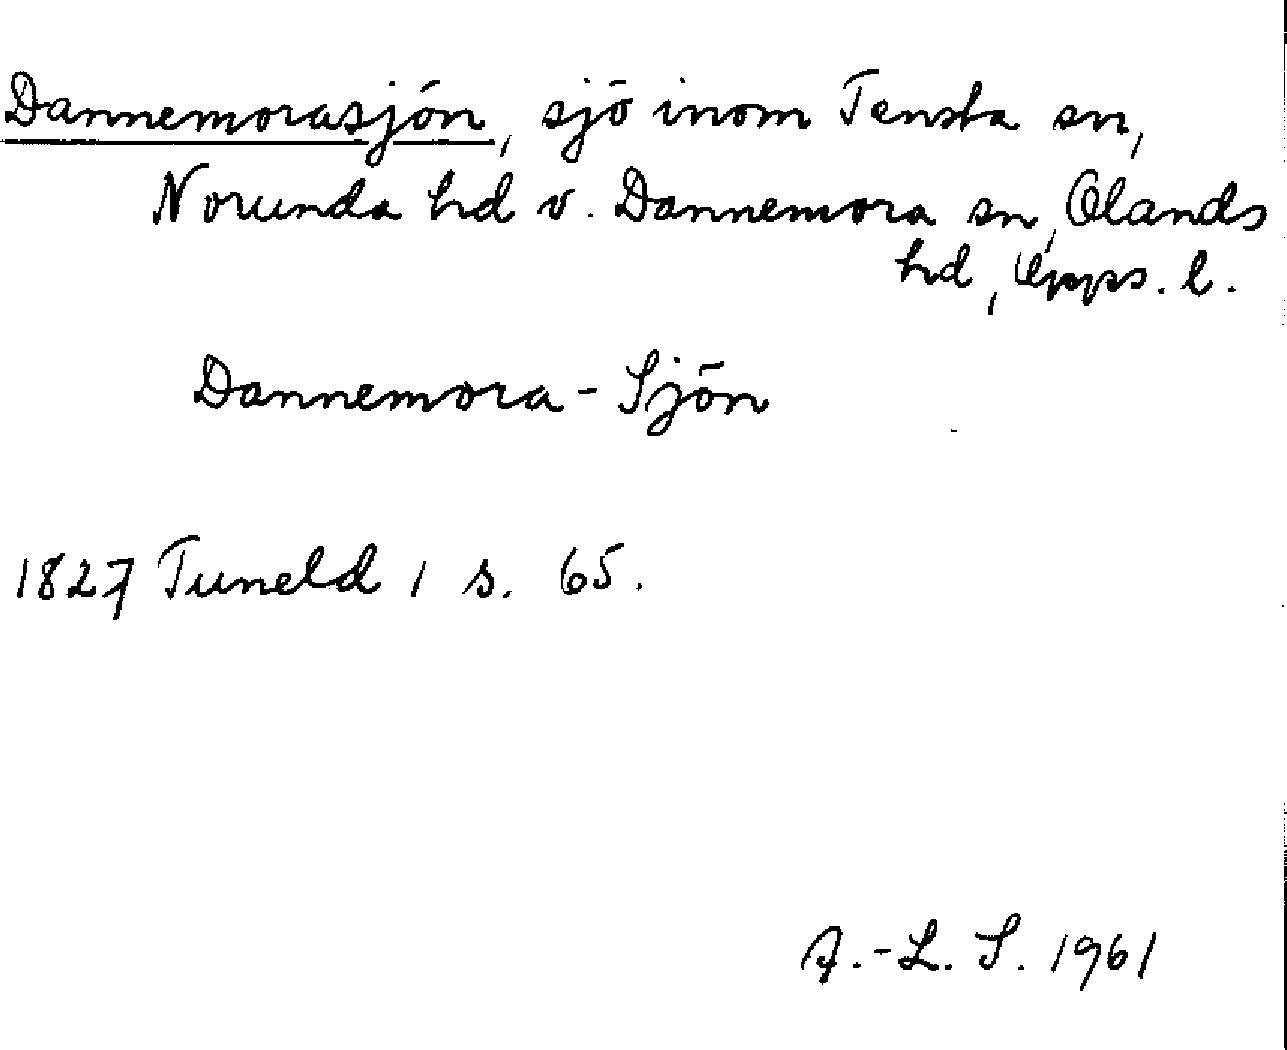 Dannemorasjön, sjö inom Tensta sn,
Norunda hd v. Dannemora sn, Olands
hd, Upps. l.
Dannemora-Sjön
1827 Tuneld 1 s. 65.
A.-L. S. 1961